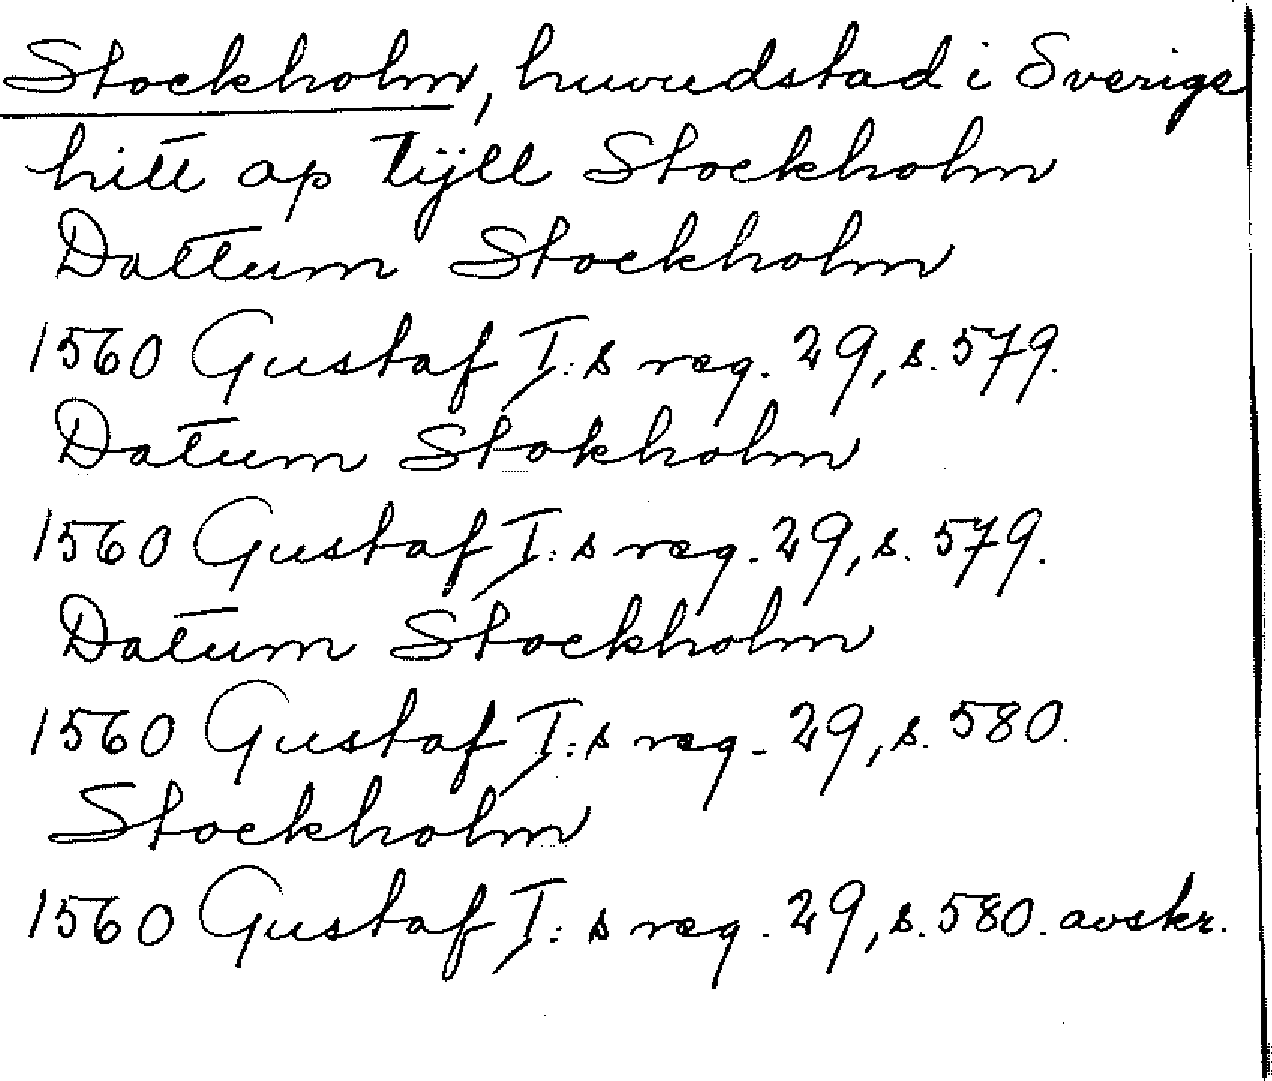 Stockholm, huvudstad i Sverige
hitt ap tijll Stockholm
Dattum Stockholm
1560 Gustaf I:s reg. 29, s. 579.
Datum Stokholm
1560 Gustaf I:s reg. 29, s. 579.
Datum Stockholm
1560 Gustaf I:s reg. 29, s. 580.
Stockholm
1560 Gustaf I:s reg. 29, s. 580. avskr.